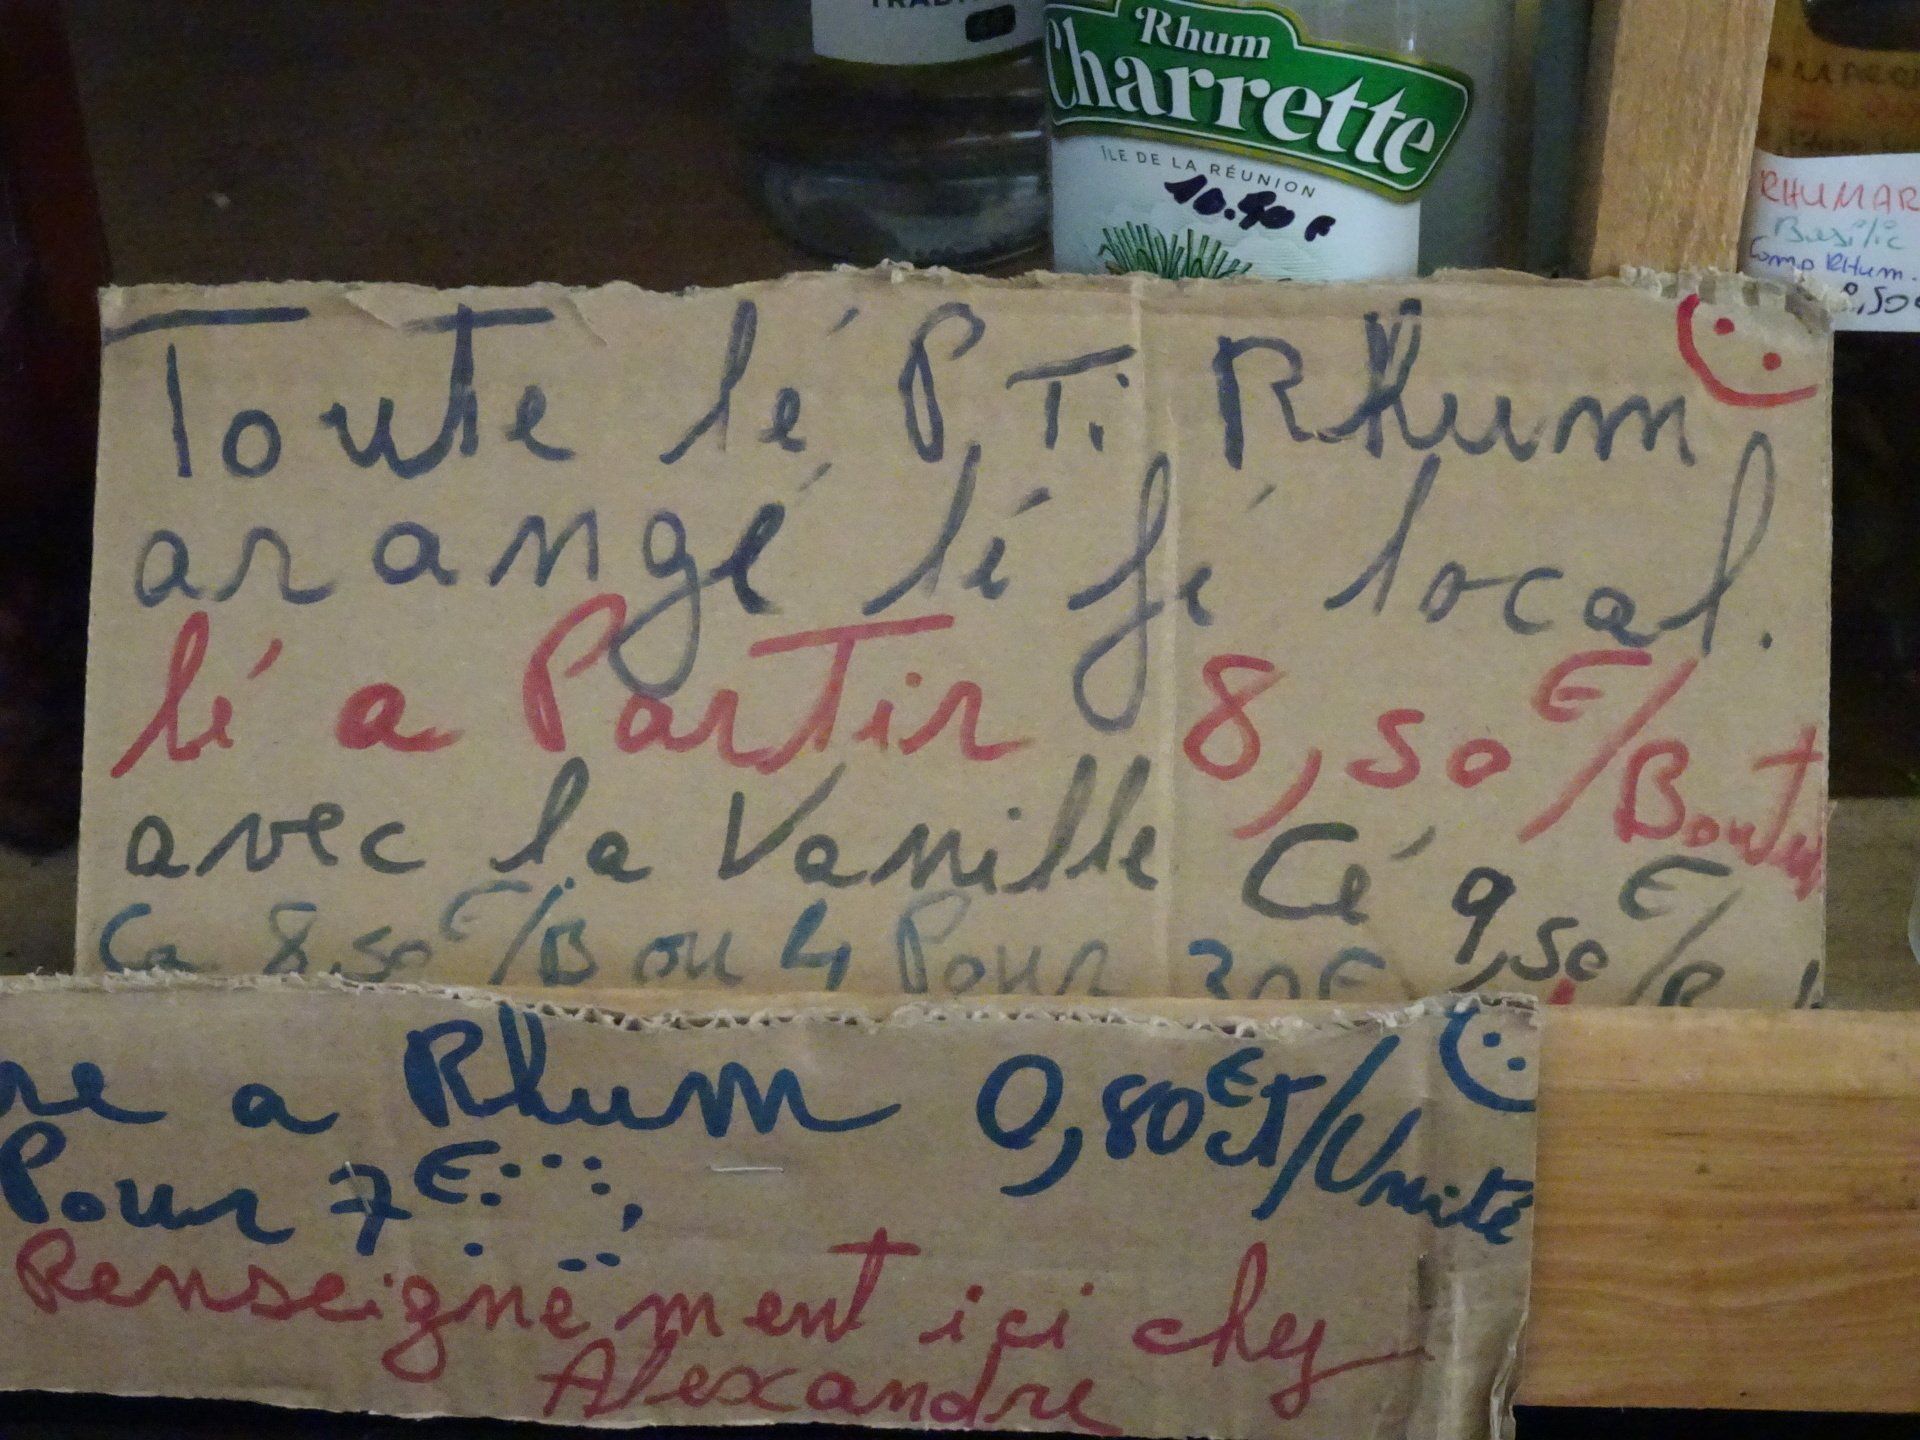 Rhum
Charrette
ÎLE DE LA RÉUNION
10.90 €
RHUMAR
Basilic
Comp RHum.
8,50€
Toute lé P Ti RHum
arangé lé fé local.
lé a ParTir 8,50 €/Bouteil
avec la Vanille Cé 9,50 €/B
Ca 8,50 €/B ou 4 Pour 30€
re a Rhum 0,80€/Unité
Pour 7€
Renseignement ici chez
Alexandre